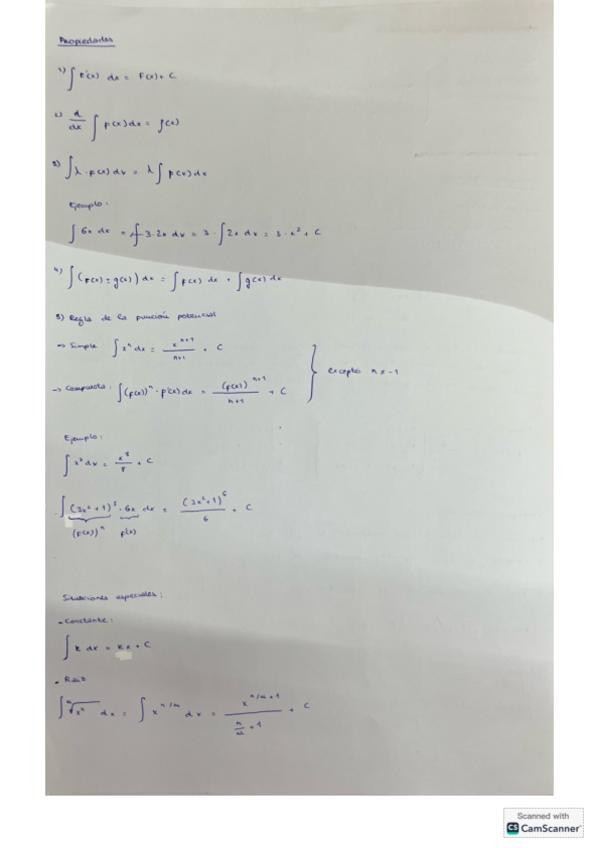 Propiedades
1) ∫ F'(x) dx = F(x) + C
2) d/dx ∫ f(x) dx = f(x)
3) ∫ λ · f(x) dx = λ ∫ f(x) dx
Ejemplo:
∫ 6x dx = ∫ 3·2x dx = 3 · ∫ 2x dx = 3 · x² + C
4) ∫ (f(x) ± g(x)) dx = ∫ f(x) dx + ∫ g(x) dx
5) Regla de la función potencial
→ Simple ∫ xⁿ dx = x^(n+1) / (n+1) + C
→ Compuesta: ∫ (f(x))ⁿ · f'(x) dx = (f(x))^(n+1) / (n+1) + C } excepto n = -1
Ejemplo:
∫ x⁷ dx = x⁸/8 + C
∫ (3x²+1)⁵ · 6x dx = (3x²+1)⁶ / 6 + C
(f(x))ⁿ f'(x)
Situaciones especiales:
- Constante:
∫ k dx = kx + C
- Raíz
∫ ᵐ√xⁿ dx = ∫ x^(n/m) dx = x^(n/m + 1) / (n/m + 1) + C
Scanned with
CS CamScanner